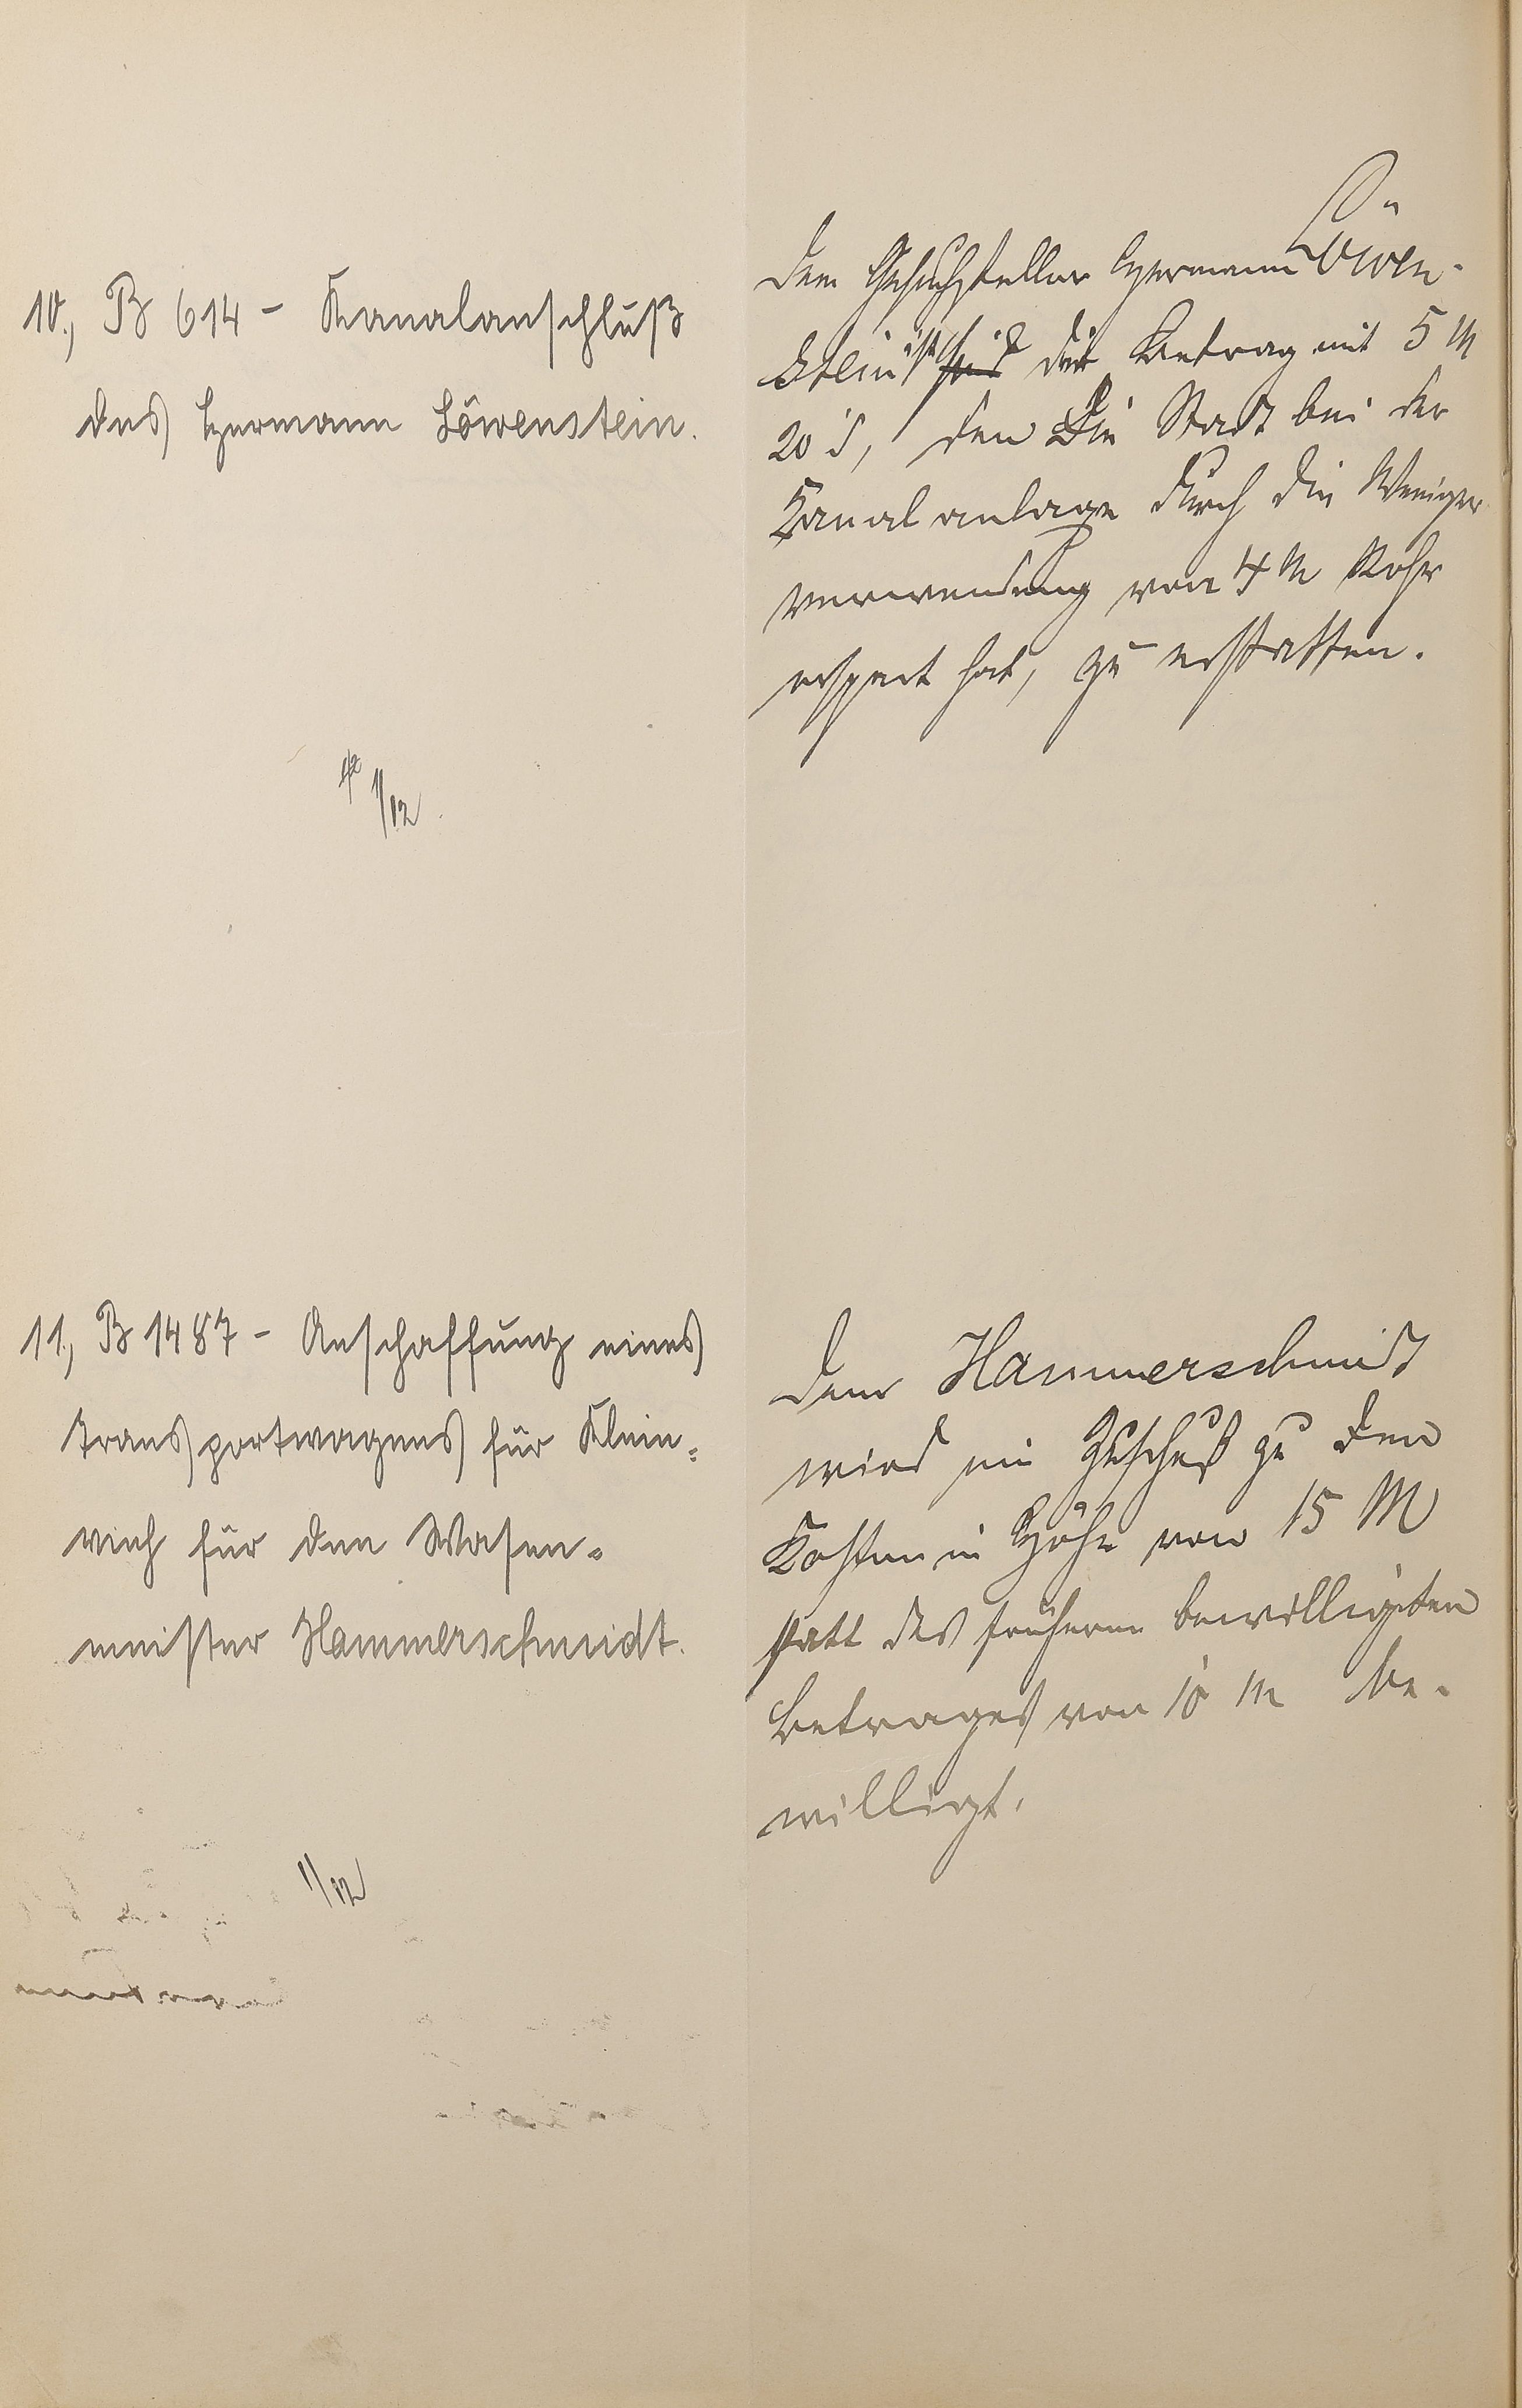 10., B 614 - Kanalanschluß
des Hermann Löwenstein.
1/12
Dem Gesuchsteller Hermann Löwen-
stein ist der Betrag mit 5 M
20 ₰, den die Stadt bei der
Kanalanlage durch die Weniger
verwendung von 4 m Rohr
erspart hat, zu erstatten.
11., B 1487 - Anschaffung eines
Transportwagens für Klein-
vieh für den Wasen-
meister Hammerschmidt.
1/12
Dem Hammerschmidt
wird ein Zuschuß zu den
Kosten in Höhe von 15 M
statt des früheren bewilligten
Betrages von 10 M be-
willigt.